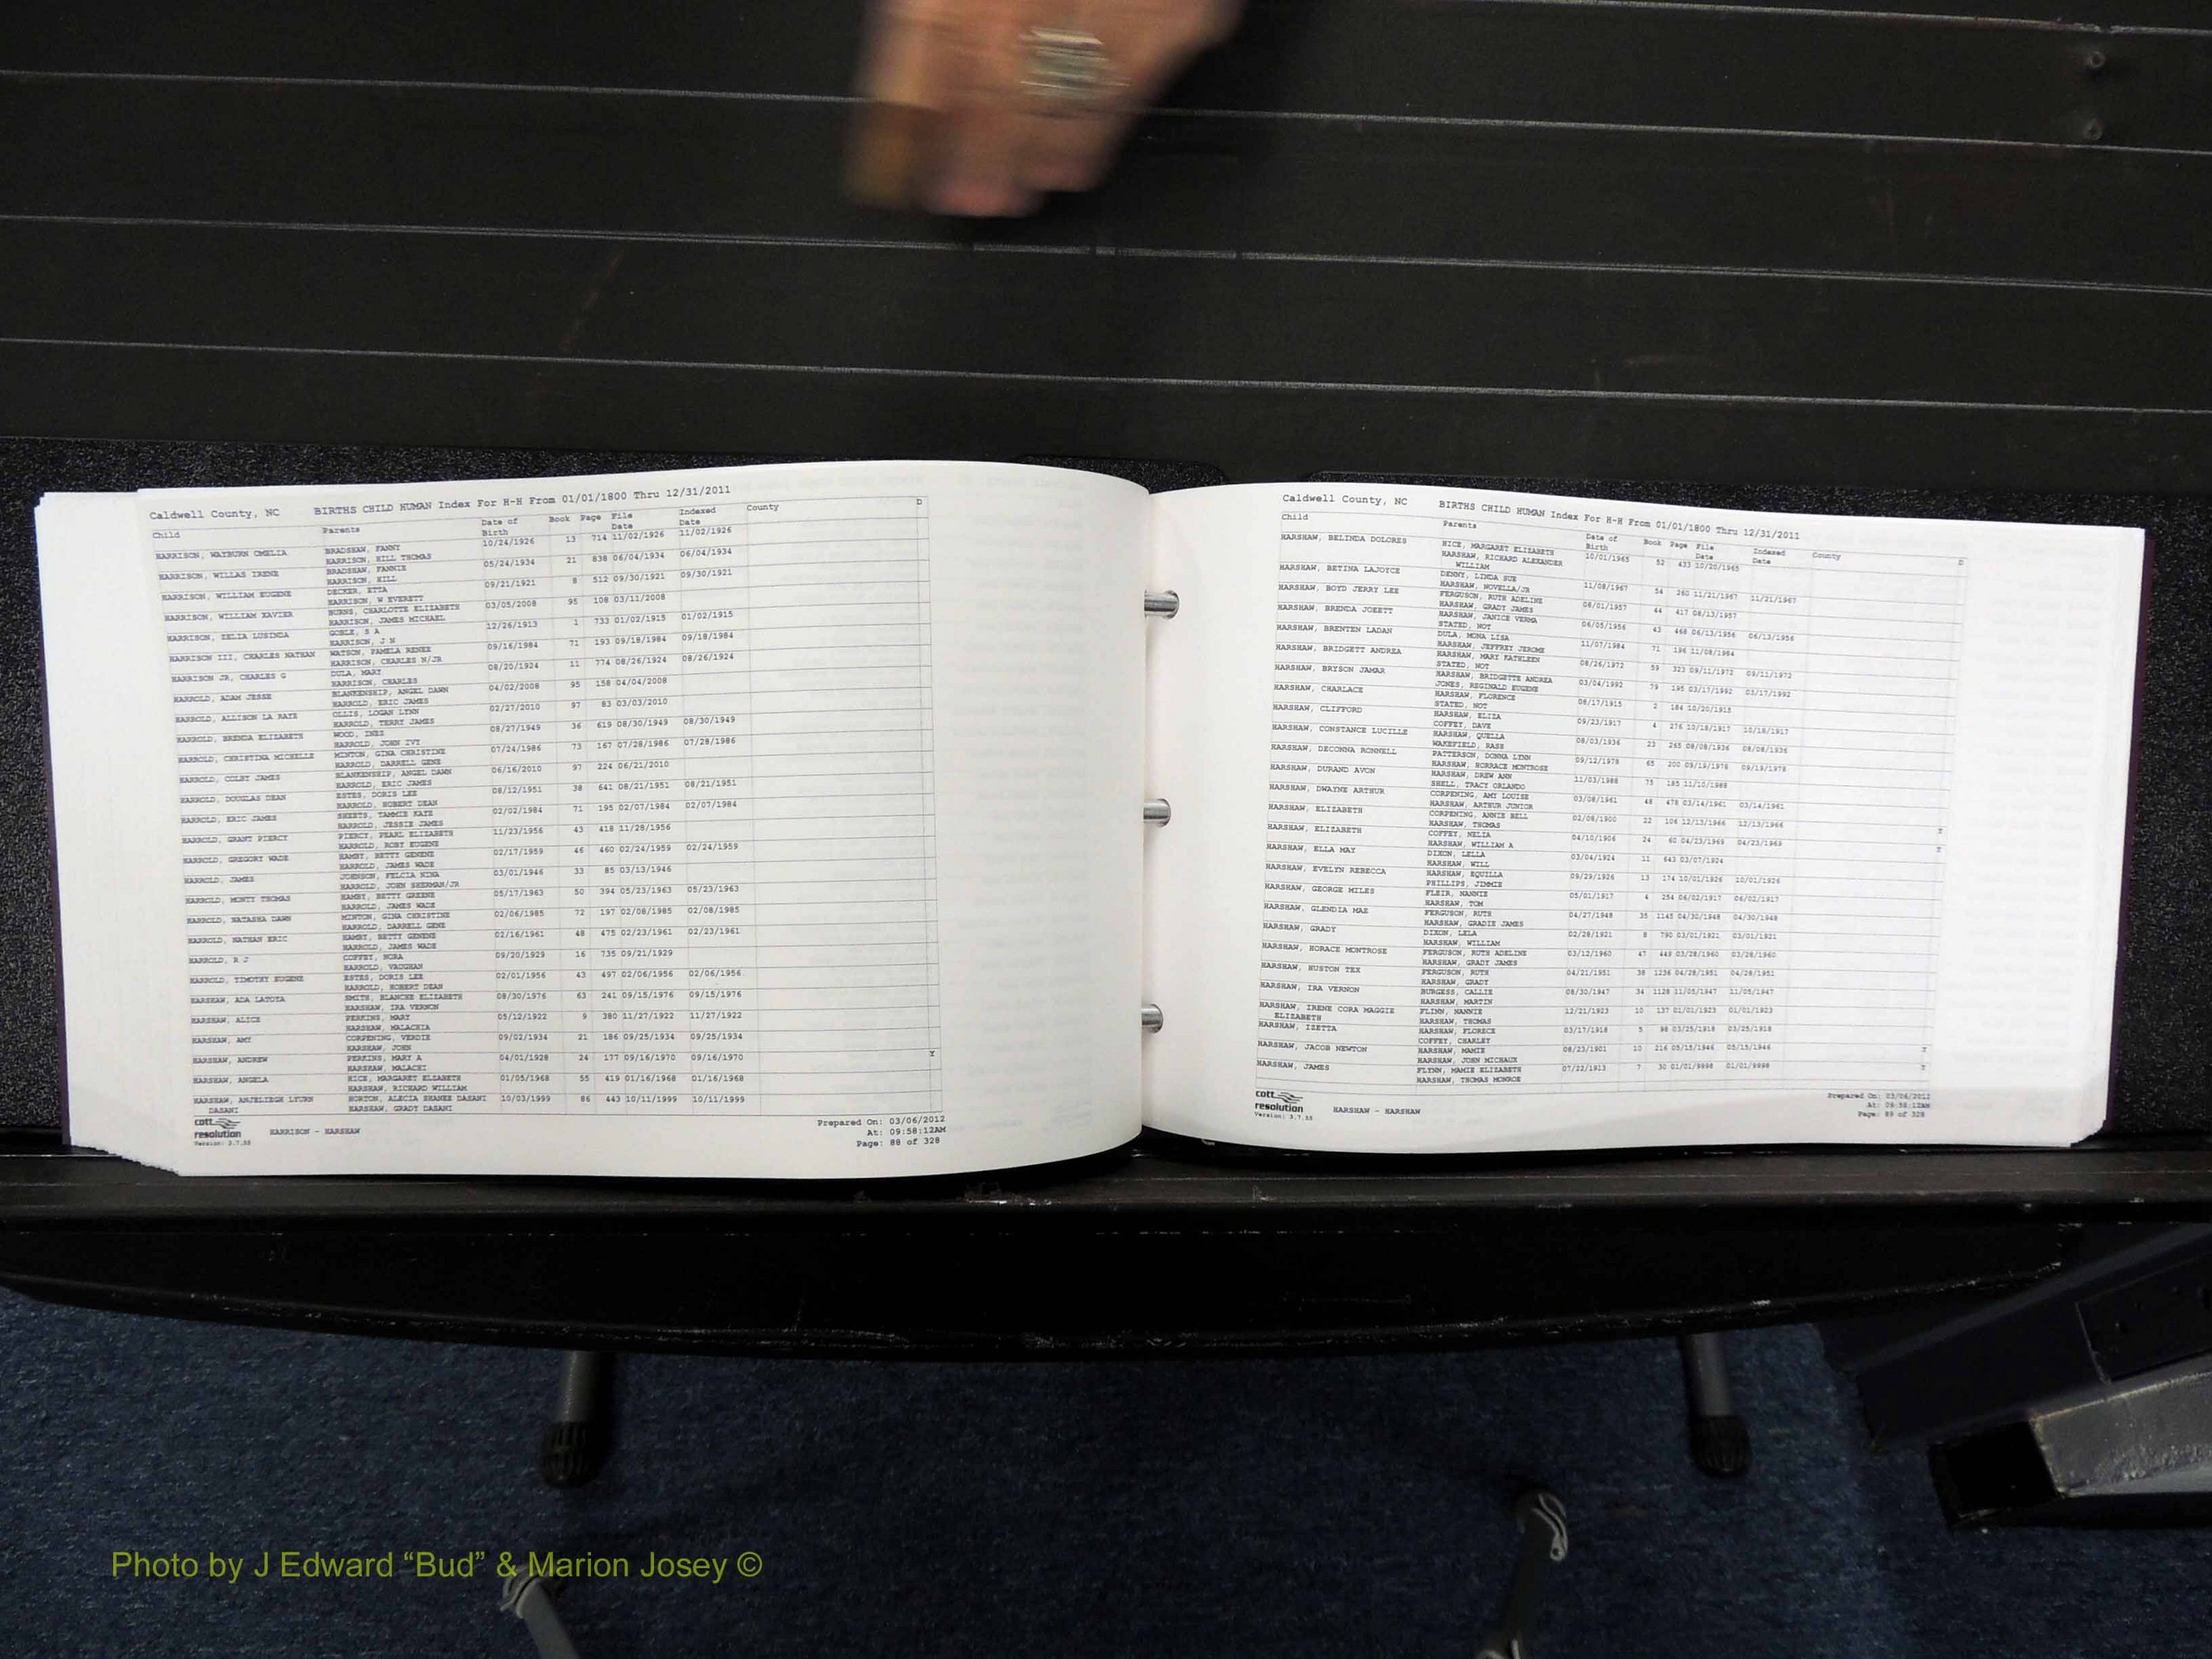 Caldwell County, NC BIRTHS CHILD HUMAN Index For H-H From 01/01/1800 Thru 12/31/2011
Child Parents Date of Birth Book Page File Date Indexed Date County D
HARRISON, WAYBURN OMELIA BRADSHAW, FANNY 10/24/1926 13 714 11/02/1926 11/02/1926
HARRISON, HILL THOMAS
HARRISON, WILLAS IRENE BRADSHAW, FANNIE 05/24/1934 21 838 06/04/1934 06/04/1934
HARRISON, HILL
HARRISON, WILLIAM EUGENE DECKER, ETTA 09/21/1921 8 512 09/30/1921 09/30/1921
HARRISON, W EVERETT
HARRISON, WILLIAM XAVIER BURNS, CHARLOTTE ELIZABETH 03/05/2008 95 108 03/11/2008
HARRISON, JAMES MICHAEL
HARRISON, ZELIA LUSINDA GOBLE, S A 12/26/1913 1 733 01/02/1915 01/02/1915
HARRISON, J N
HARRISON III, CHARLES NATHAN WATSON, PAMELA RENEE 09/16/1984 71 193 09/18/1984 09/18/1984
HARRISON, CHARLES N/JR
HARRISON JR, CHARLES G DULA, MARY 08/20/1924 11 774 08/26/1924 08/26/1924
HARRISON, CHARLES
HARROLD, ADAM JESSE BLANKENSHIP, ANGEL DAWN 04/02/2008 95 158 04/04/2008
HARROLD, ERIC JAMES
HARROLD, ALLISON LA RAYE OLLIS, LOGAN LYNN 02/27/2010 97 83 03/03/2010
HARROLD, TERRY JAMES
HARROLD, BRENDA ELIZABETH WOOD, INEZ 08/27/1949 36 619 08/30/1949 08/30/1949
HARROLD, JOHN IVY
HARROLD, CHRISTINA MICHELLE MINTON, GINA CHRISTINE 07/24/1986 73 167 07/28/1986 07/28/1986
HARROLD, DARRELL GENE
HARROLD, COLBY JAMES BLANKENSHIP, ANGEL DAWN 06/16/2010 97 224 06/21/2010
HARROLD, ERIC JAMES
HARROLD, DOUGLAS DEAN ESTES, DORIS LEE 08/12/1951 38 641 08/21/1951 08/21/1951
HARROLD, ROBERT DEAN
HARROLD, ERIC JAMES SHEETS, TAMMIE KAYE 02/02/1984 71 195 02/07/1984 02/07/1984
HARROLD, JESSIE JAMES
HARROLD, GRANT PIERCY PIERCY, PEARL ELIZABETH 11/23/1956 43 418 11/28/1956
HARROLD, ROBY EUGENE
HARROLD, GREGORY WADE HAMBY, BETTY GENENE 02/17/1959 46 460 02/24/1959 02/24/1959
HARROLD, JAMES WADE
HARROLD, JAMES JOHNSON, FELCIA NINA 03/01/1946 33 85 03/13/1946
HARROLD, JOHN SHERMAN/JR
HARROLD, MONTY THOMAS HAMBY, BETTY GREENE 05/17/1963 50 394 05/23/1963 05/23/1963
HARROLD, JAMES WADE
HARROLD, NATASHA DAWN MINTON, GINA CHRISTINE 02/06/1985 72 197 02/08/1985 02/08/1985
HARROLD, DARRELL GENE
HARROLD, NATHAN ERIC HAMBY, BETTY GENENE 02/16/1961 48 475 02/23/1961 02/23/1961
HARROLD, JAMES WADE
HARROLD, R J COFFEY, NORA 09/20/1929 16 735 09/21/1929
HARROLD, VAUGHAN
HARROLD, TIMOTHY EUGENE ESTES, DORIS LEE 02/01/1956 43 497 02/06/1956 02/06/1956
HARROLD, ROBERT DEAN
HARSHAW, ADA LATOYA SMITH, BLANCHE ELIZABETH 08/30/1976 63 241 09/15/1976 09/15/1976
HARSHAW, IRA VERNON
HARSHAW, ALICE PERKINS, MARY 05/12/1922 9 380 11/27/1922 11/27/1922
HARSHAW, MALACHIA
HARSHAW, AMY CORPENING, VERDIE 09/02/1934 21 186 09/25/1934 09/25/1934
HARSHAW, JOHN
HARSHAW, ANDREW PERKINS, MARY A 04/01/1928 24 177 09/16/1970 09/16/1970 Y
HARSHAW, MALACHI
HARSHAW, ANGELA HICE, MARGARET ELIZABETH 01/05/1968 55 419 01/16/1968 01/16/1968
HARSHAW, RICHARD WILLIAM
HARSHAW, ANJELIEGH LYURN HORTON, ALECIA SHANEE DASANI 10/03/1999 86 443 10/11/1999 10/11/1999
DASANI HARSHAW, GRADY DASANI
cott resolution HARRISON - HARSHAW Prepared On: 03/06/2012
Version: 3.7.55 At: 09:58:12AM
Page: 88 of 328
Caldwell County, NC BIRTHS CHILD HUMAN Index For H-H From 01/01/1800 Thru 12/31/2011
Child Parents Date of Birth Book Page File Date Indexed Date County D
HARSHAW, BELINDA DOLORES HICE, MARGARET ELIZABETH 10/01/1965 52 433 10/20/1965
HARSHAW, RICHARD ALEXANDER
WILLIAM
HARSHAW, BETINA LAJOYCE DENNY, LINDA SUE 11/08/1967 54 260 11/21/1967 11/21/1967
HARSHAW, NOVELLA/JR
HARSHAW, BOYD JERRY LEE FERGUSON, RUTH ADELINE 08/01/1957 44 417 08/13/1957
HARSHAW, GRADY JAMES
HARSHAW, BRENDA JOEETT HARSHAW, JANICE VERMA 06/05/1956 43 468 06/13/1956 06/13/1956
STATED, NOT
HARSHAW, BRENTEN LADAN DULA, MONA LISA 11/07/1984 71 196 11/08/1984
HARSHAW, JEFFREY JEROME
HARSHAW, BRIDGETT ANDREA HARSHAW, MARY KATHLEEN 08/26/1972 59 323 09/11/1972 09/11/1972
STATED, NOT
HARSHAW, BRYSON JAMAR HARSHAW, BRIDGETTE ANDREA 03/04/1992 79 195 03/17/1992 03/17/1992
JONES, REGINALD EUGENE
HARSHAW, CHARLACE HARSHAW, FLORENCE 08/17/1915 2 184 10/20/1915
STATED, NOT
HARSHAW, CLIFFORD HARSHAW, ELIZA 09/23/1917 4 276 10/18/1917 10/18/1917
COFFEY, DAVE
HARSHAW, CONSTANCE LUCILLE HARSHAW, QUELLA 08/03/1936 23 265 08/08/1936 08/08/1936
WAKEFIELD, RASE
HARSHAW, DECONNA RONNELL PATTERSON, DONNA LYNN 09/12/1978 65 200 09/19/1978 09/19/1978
HARSHAW, HORRACE MONTROSE
HARSHAW, DURAND AVON HARSHAW, DREW ANN 11/03/1988 75 185 11/10/1988
SHELL, TRACY ORLANDO
HARSHAW, DWAYNE ARTHUR CORPENING, AMY LOUISE 03/08/1961 48 478 03/14/1961 03/14/1961
HARSHAW, ARTHUR JUNIOR
HARSHAW, ELIZABETH CORPENING, ANNIE BELL 02/08/1900 22 106 12/13/1966 12/13/1966 Y
HARSHAW, THOMAS
HARSHAW, ELIZABETH COFFEY, NELIA 04/10/1906 24 60 04/23/1969 04/23/1969 Y
HARSHAW, WILLIAM A
HARSHAW, ELLA MAY DIXON, LELLA 03/04/1924 11 643 03/07/1924
HARSHAW, WILL
HARSHAW, EVELYN REBECCA HARSHAW, EQUILLA 09/29/1926 13 174 10/01/1926 10/01/1926
PHILLIPS, JIMMIE
HARSHAW, GEORGE MILES FLEIR, NANNIE 05/01/1917 4 254 06/02/1917 06/02/1917
HARSHAW, TOM
HARSHAW, GLENDIA MAE FERGUSON, RUTH 04/27/1948 35 1145 04/30/1948 04/30/1948
HARSHAW, GRADIE JAMES
HARSHAW, GRADY DIXON, LELA 02/28/1921 8 790 03/01/1921 03/01/1921
HARSHAW, WILLIAM
HARSHAW, HORACE MONTROSE FERGUSON, RUTH ADELINE 03/12/1960 47 449 03/28/1960 03/28/1960
HARSHAW, GRADY JAMES
HARSHAW, HUSTON TEX FERGUSON, RUTH 04/21/1951 38 1236 04/28/1951 04/28/1951
HARSHAW, GRADY
HARSHAW, IRA VERNON BURGESS, CALLIE 08/30/1947 34 1128 11/05/1947 11/05/1947
HARSHAW, MARTIN
HARSHAW, IRENE CORA MAGGIE FLINN, NANNIE 12/21/1923 10 137 01/01/1923 01/01/1923
ELIZABETH HARSHAW, THOMAS
HARSHAW, IZETTA HARSHAW, FLORECE 03/17/1918 5 98 03/25/1918 03/25/1918
COFFEY, CHARLEY
HARSHAW, JACOB NEWTON HARSHAW, MAMIE 08/23/1901 10 216 05/15/1946 05/15/1946 Y
HARSHAW, JOHN MICHAUX
HARSHAW, JAMES FLYNN, MAMIE ELIZABETH 07/22/1913 7 30 01/01/9998 01/01/9998 Y
HARSHAW, THOMAS MONROE
cott resolution HARSHAW - HARSHAW Prepared On: 03/06/2012
Version: 3.7.55 At: 09:58:12AM
Page: 89 of 328
Photo by J Edward “Bud” & Marion Josey ©